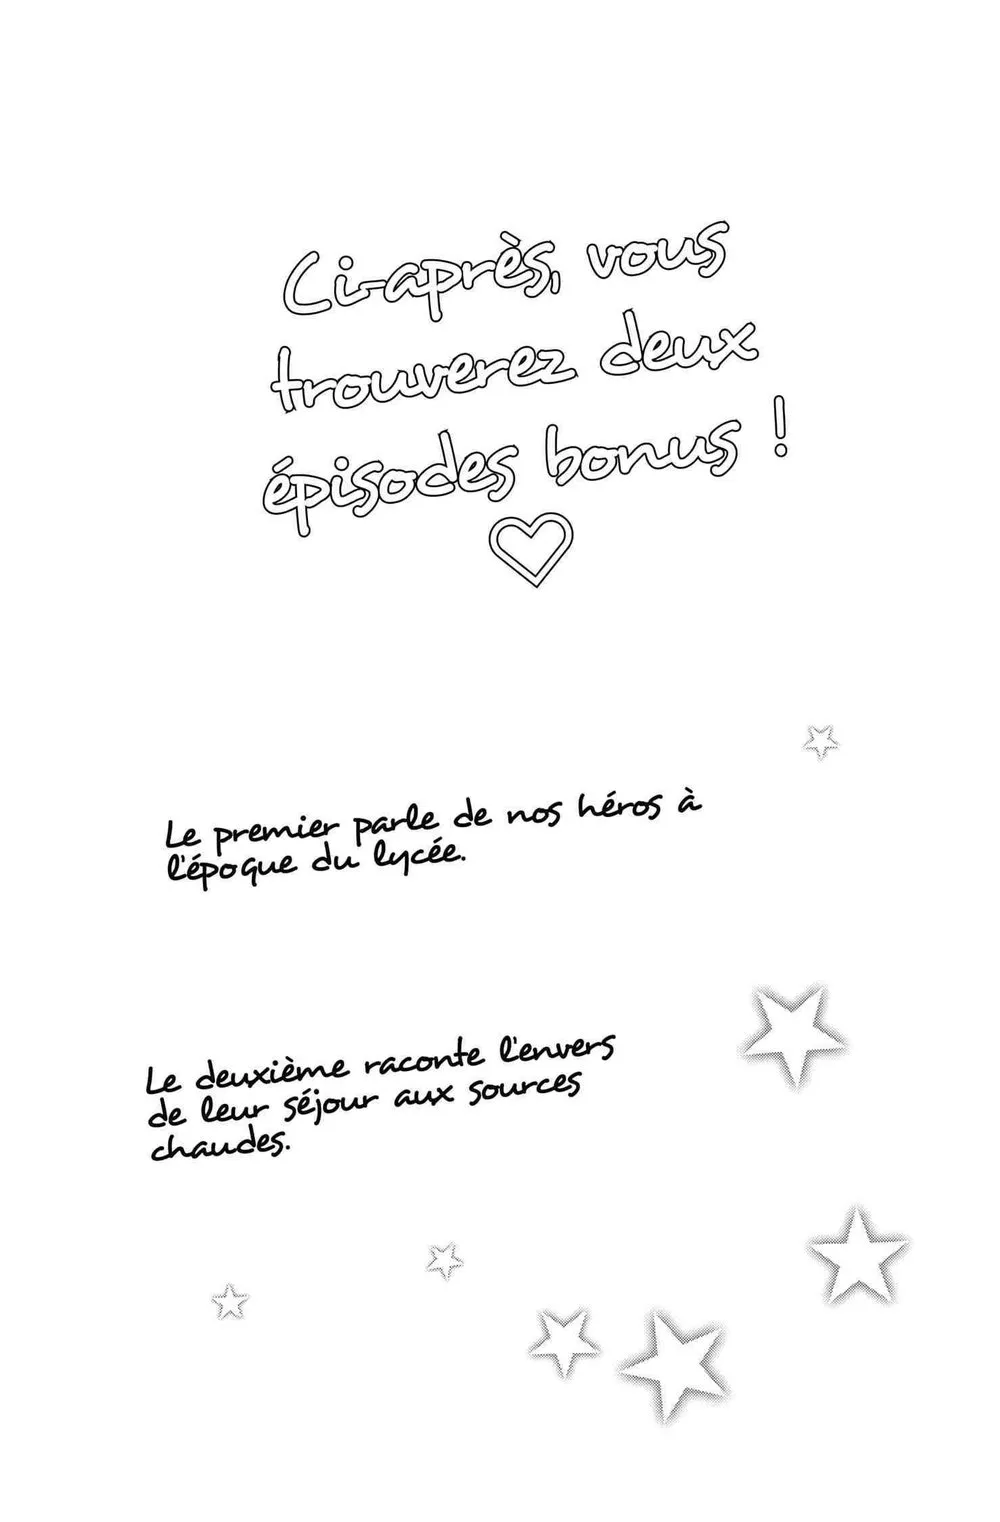 Ci-après, vous
trouverez deux
épisodes bonus !
♡
Le premier parle de nos héros à
l'époque du lycée.
Le deuxième raconte l'envers
de leur séjour aux sources
chaudes.